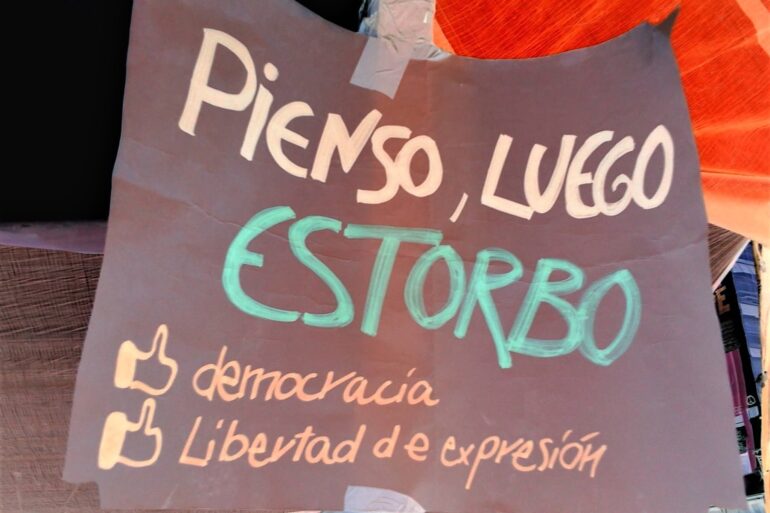 PIENSO, LUEGO
ESTORBO
democracia
Libertad de expresión